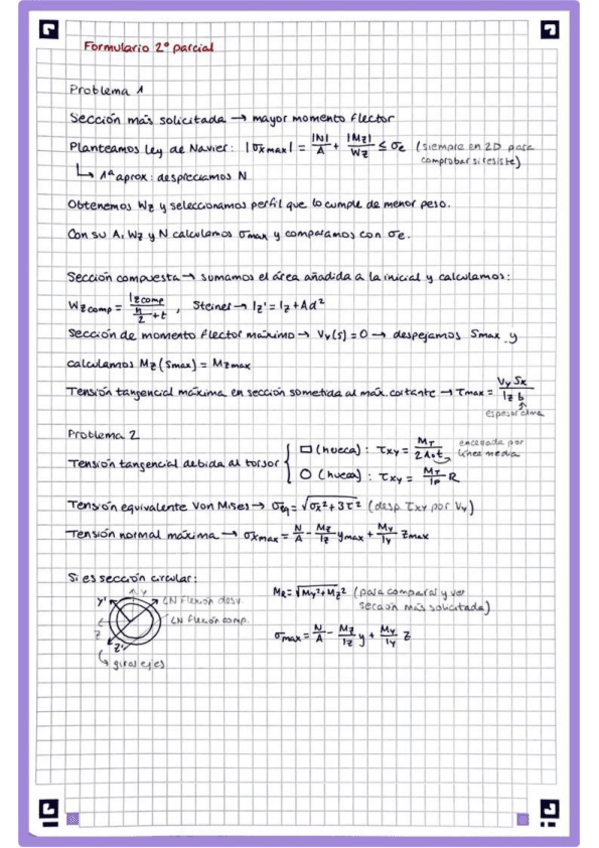 Formulario 2º parcial
Problema 1
Sección más solicitada → mayor momento flector
Planteamos Ley de Navier: |σxmax| = |N|/A + |Mz|/Wz ≤ σe (siempre en 2D para comprobar si resiste)
↳ 1ª aprox: despreciamos N
Obtenemos Wz y seleccionamos perfil que lo cumple de menor peso.
Con su A, Wz y N calculamos σmax y comparamos con σe.
Sección compuesta → sumamos el área añadida a la inicial y calculamos:
Wzcomp = Izcomp/(h/2 + t) , Steiner → Iz' = Iz + Ad²
Sección de momento flector máximo → Vy(s) = 0 → despejamos Smax y
calculamos Mz(Smax) = Mzmax
Tensión tangencial máxima en sección sometida al máx. cortante → τmax = Vy Sx/Iz b
espesor alma
Problema 2
Tensión tangencial debida al torsor { □ (hueca): τxy = MT/2A0t encerrada por línea media
○ (hueca): τxy = MT/Ip R
Tensión equivalente Von Mises → σeq = √σx² + 3τ² (desp. τxy por Vy)
Tensión normal máxima → σxmax = N/A - Mz/Iz ymax + My/Iy zmax
Si es sección circular:
MR = √My² + Mz² (para comparar y ver sección más solicitada)
y' y LN flexión desv.
LN flexión comp.
z z'
↳ girar ejes
σmax = N/A - Mz/Iz y + My/Iy z